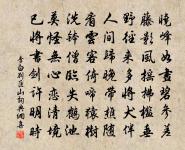 曉峰如畫碧參差
藤影風搖拂檻垂
野徑來多將犬伴
人間歸晚帶樵隨
看雲客倚啼猿樹
洗缽僧臨失鶴池
莫怪無心戀清境
已將書劍許明時
李白別匡山詞典網